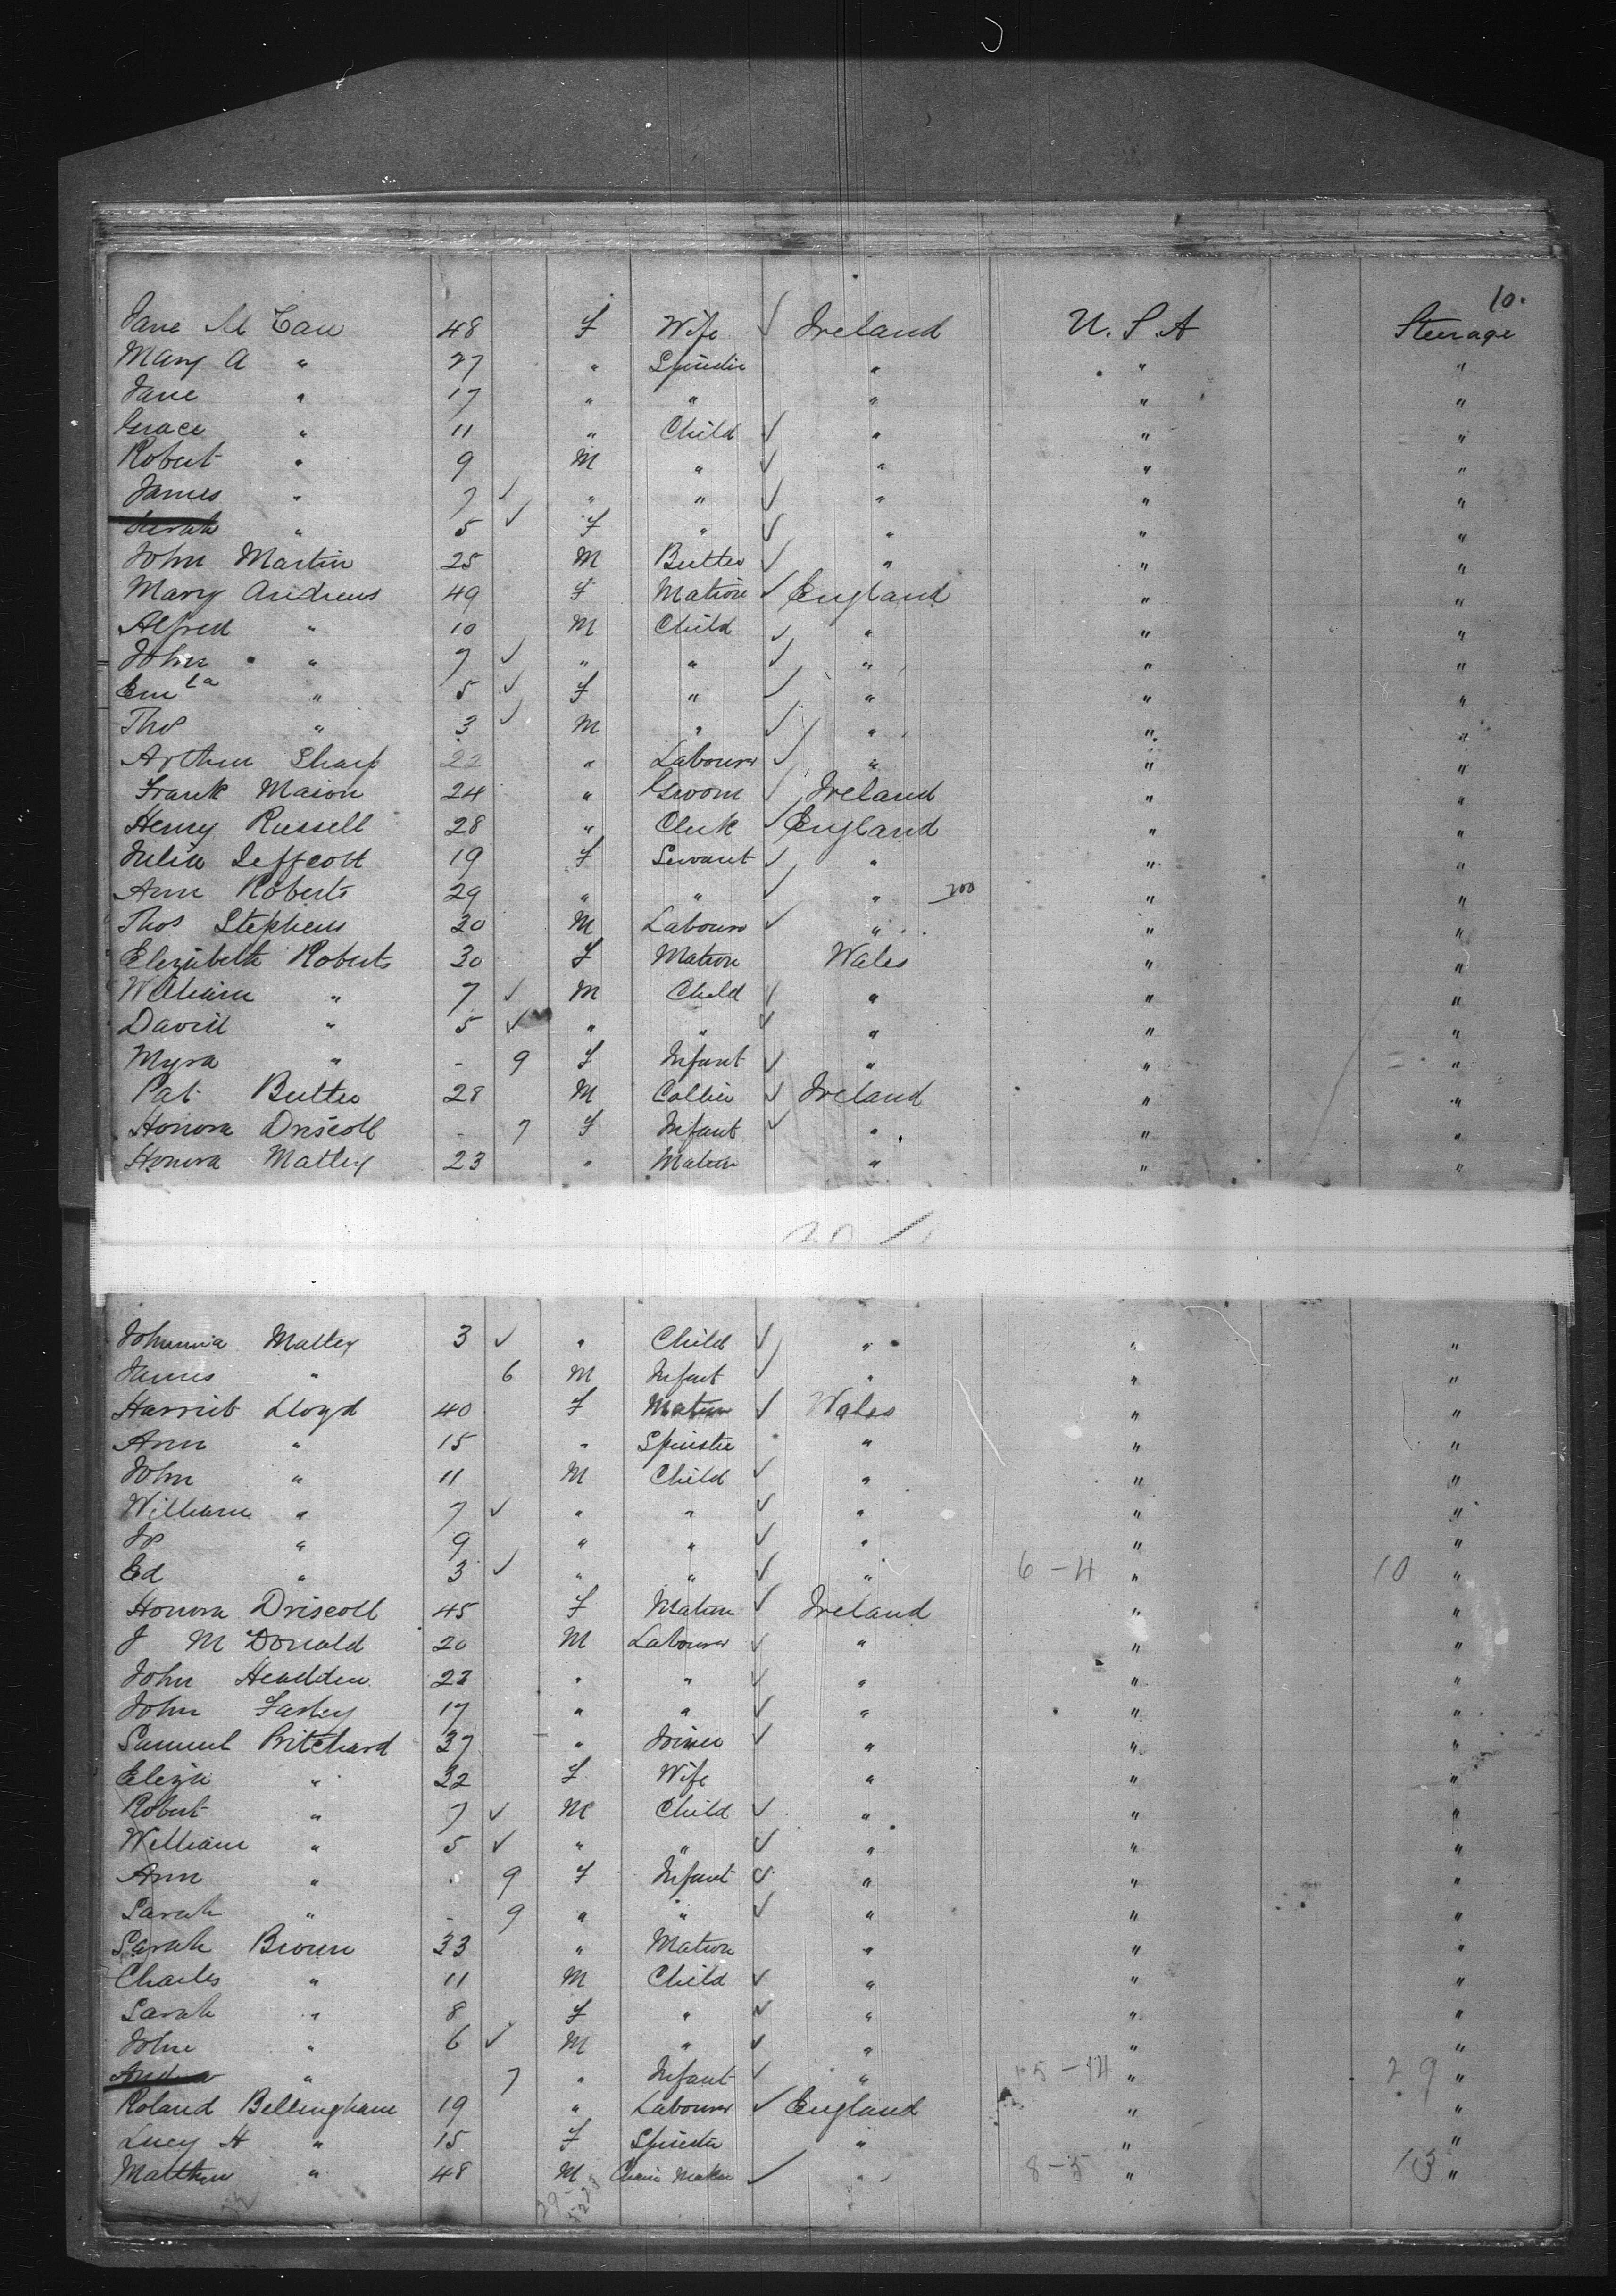 10.
Jane Mc Cau 48 F Wife ✓ Ireland U.S.A Steerage
Mary A " 27 " Spinster " " "
Jane " 17 " " " " "
Grace " 11 " Child ✓ " " "
Robert " 9 M " ✓ " " "
James " 7 ✓ " " ✓ " " "
Sarah " 5 ✓ F " ✓ " " "
John Martin 25 M Butler ✓ " " "
Mary Andrews 49 F Matron ✓ England " "
Alfred " 10 M Child ✓ " " "
John " 7 ✓ " " ✓ " " "
Em " 5 ✓ F " ✓ " " "
Thos " 3 ✓ M " ✓ " " "
Arthur Sharp 22 " Labourer ✓ " " "
Frank Mason 24 " Groom ✓ Ireland " "
Henry Russell 28 " Clerk ✓ England " "
Julia Jeffcott 19 F Servant ✓ " " "
Ann Roberts 29 " " ✓ " 200 " "
Thos Stephens 20 M Labourer ✓ " " "
Elizabeth Roberts 30 F Matron Wales " "
William " 7 ✓ M Child ✓ " " "
David " 5 ✓ " " ✓ " " "
Myra " - 9 F Infant ✓ " " "
Pat Butler 28 M Collier ✓ Ireland " "
Honora Driscoll - 7 F Infant ✓ " " "
Honora Mattey 23 " Matron " " "
Johanna Mattey 3 ✓ " Child ✓ " " "
James " 6 M Infant ✓ " " "
Harriet Lloyd 40 F Matron ✓ Wales " "
Ann " 15 " Spinster " " "
John " 11 M Child ✓ " " "
William " 7 ✓ " " ✓ " " "
Jos " 9 " " ✓ " " "
Ed " 3 ✓ " " ✓ " 6-4 " 10 "
Honora Driscoll 45 F Matron ✓ Ireland " "
J McDonald 20 M Labourer ✓ " " "
John Headden 22 " " ✓ " " "
John Farley 17 " " ✓ " " "
Samuel Pritchard 37 " Joiner ✓ " " "
Eliza " 32 F Wife " " "
Robert " 7 ✓ M Child ✓ " " "
William " 5 ✓ " " ✓ " " "
Ann " - 9 F Infant ✓ " " "
Sarah " - 9 " " ✓ " " "
Sarah Brown 33 " Matron " " "
Charles " 11 M Child ✓ " " "
Sarah " 8 F " ✓ " " "
John " 6 ✓ M " ✓ " " "
" 7 " Infant ✓ " 15-14 " 29 "
Roland Bellingham 19 " Labourer ✓ England " "
Lucy H " 15 F Spinster " " "
Matthew " 48 M Chain Maker ✓ " 8-5 " 13 "